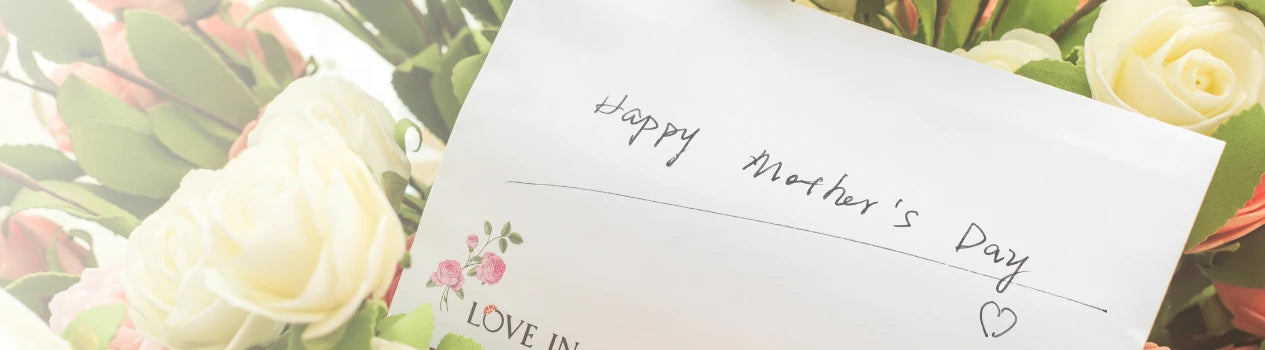 Happy Mother's Day
LOVE IN